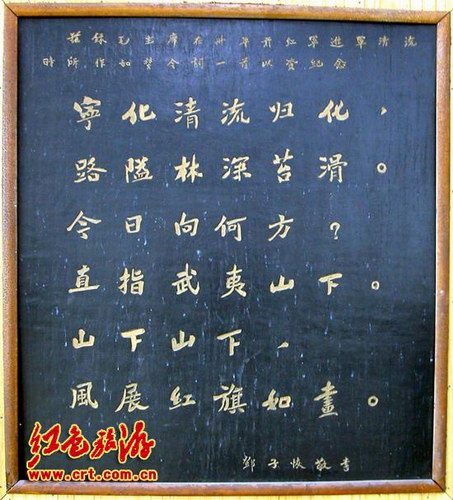 兹錄毛主席在卅年前红軍進軍清流
时所作如梦令词一首以资纪念
寧化清流归化，
路隘林深苔滑。
今日向何方？
直指武夷山下。
山下山下，
風展红旗如畫。
鄧子恢敬書
红色旅游
www.crt.com.cn